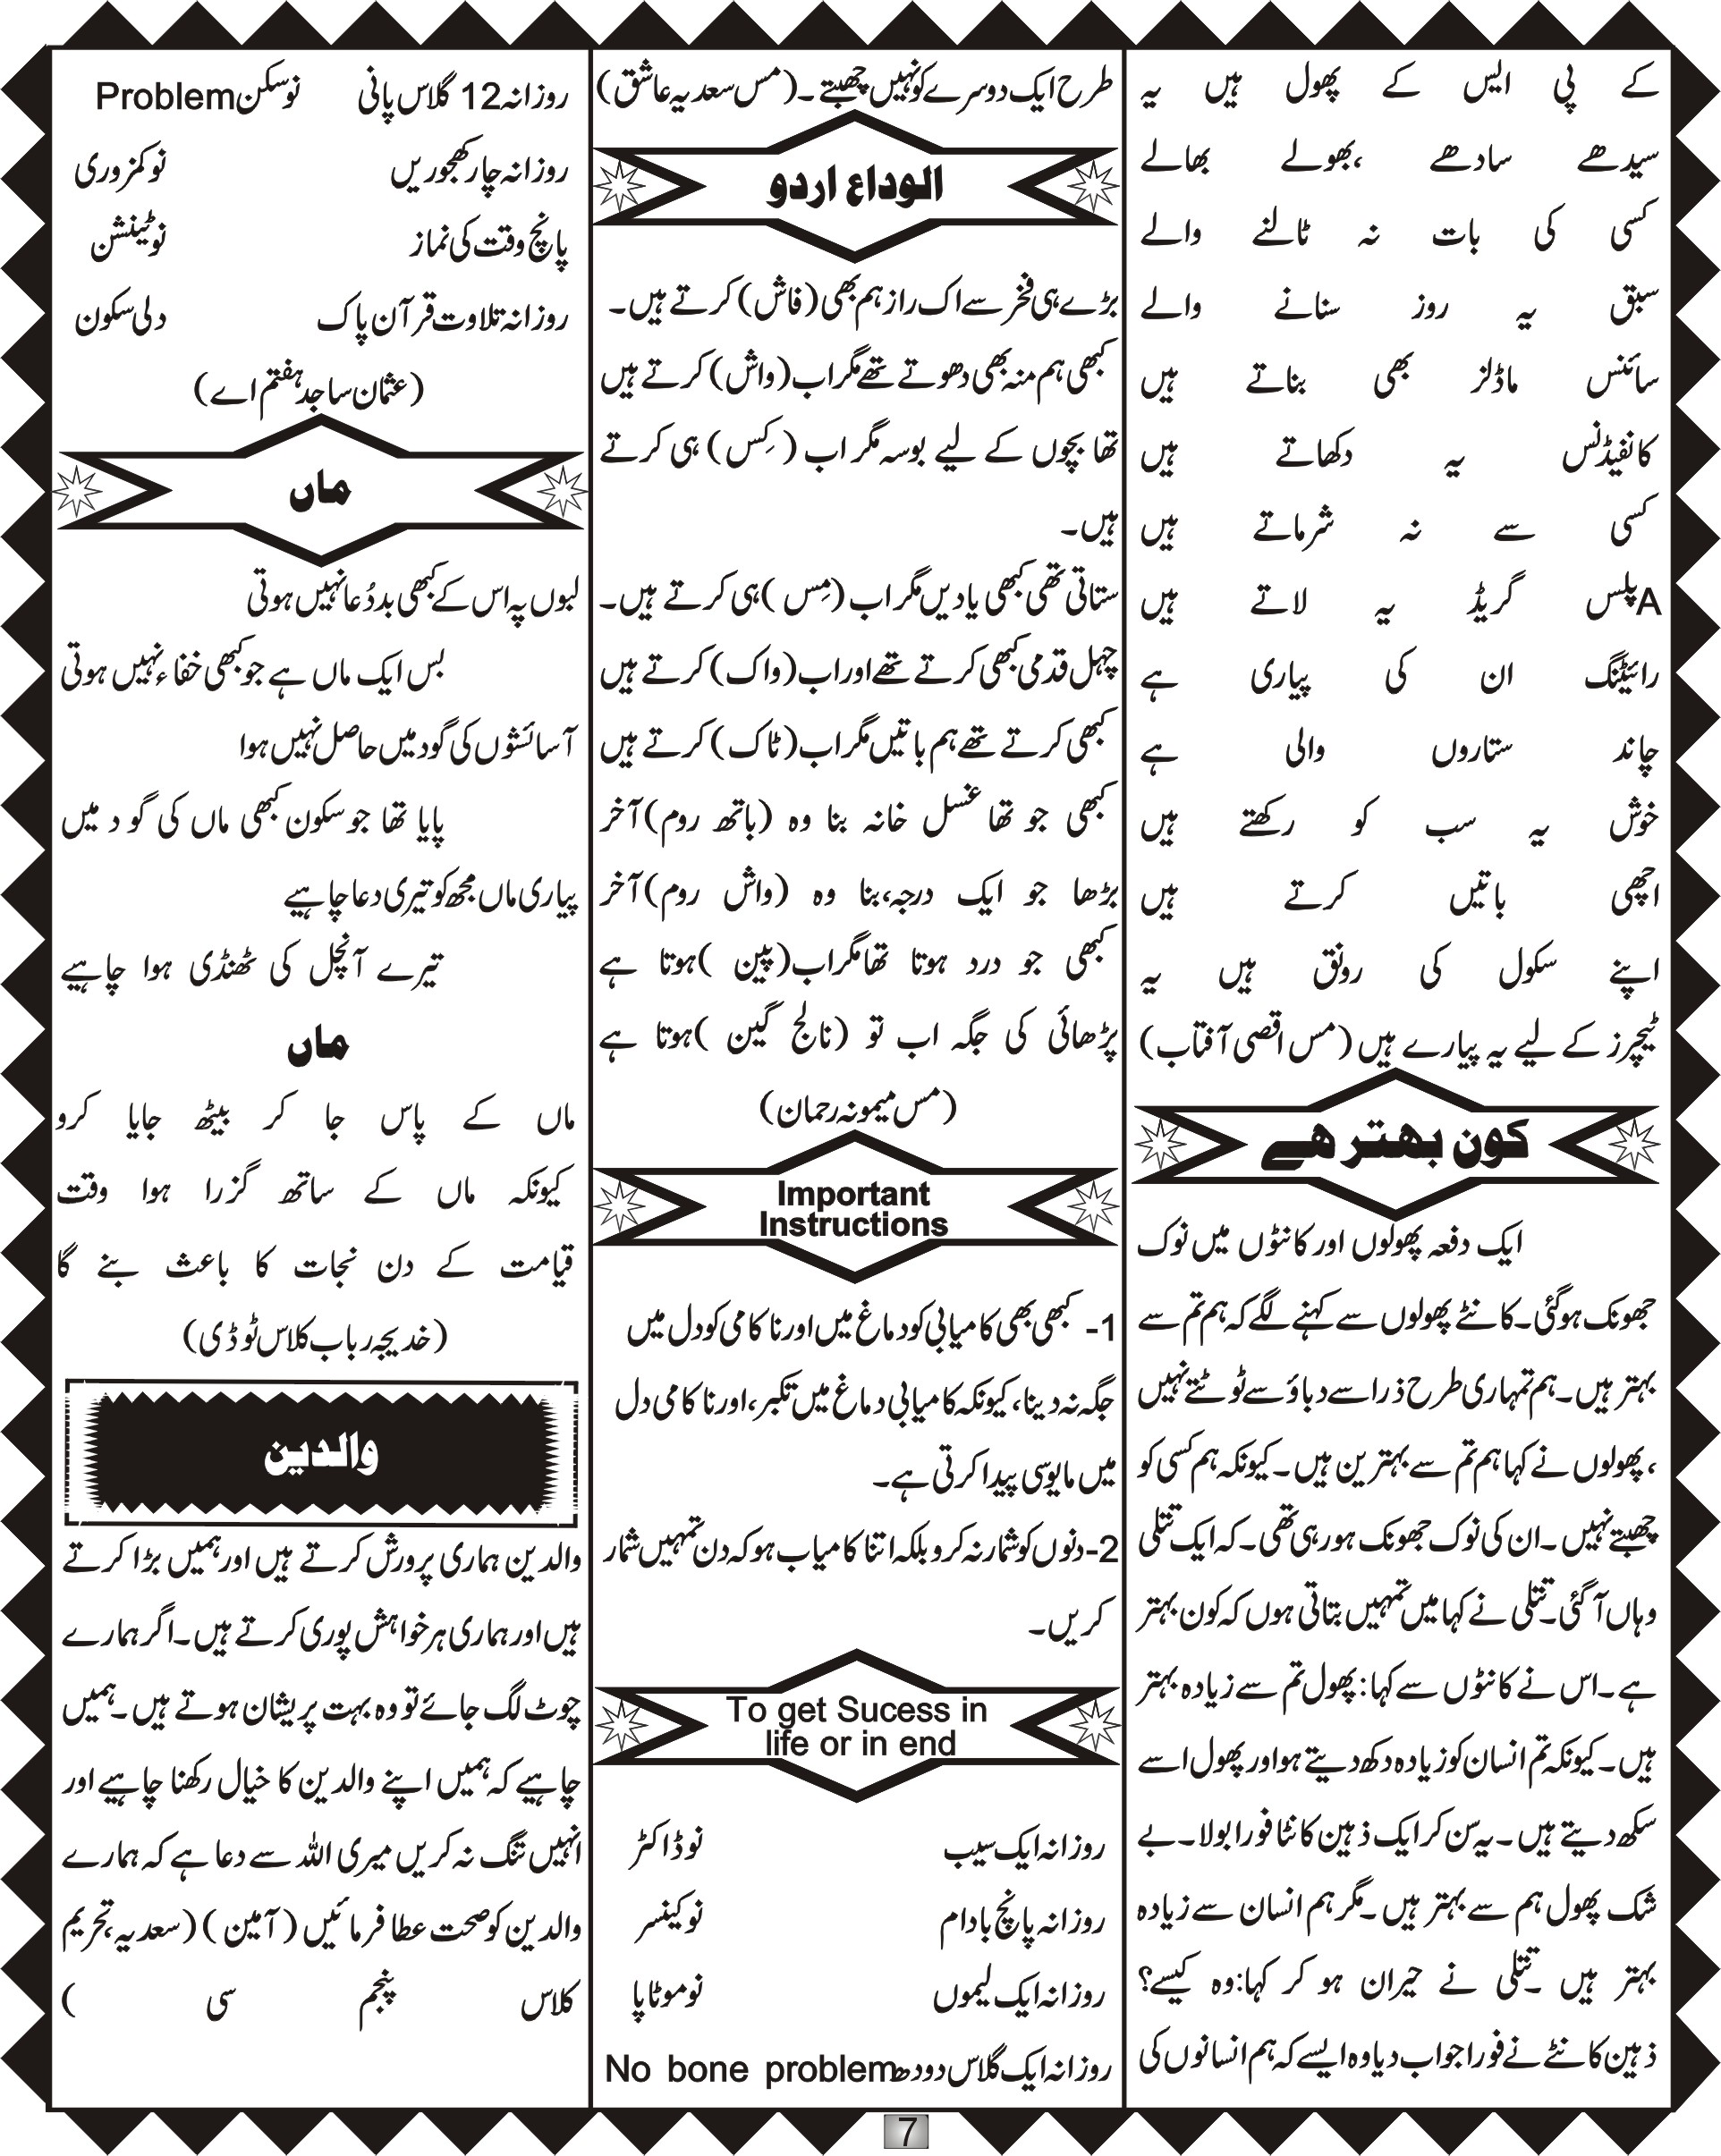 کے پی ایس کے پھول ہیں یہ
سیدھے سادھے ،بھولے بھالے
کسی کی بات نہ ٹالنے والے
سبق یہ روز سنانے والے
سائنس ماڈلز بھی بناتے ہیں
کانفیڈنس یہ دکھاتے ہیں
کسی سے نہ شرماتے ہیں
Aپلس گریڈ یہ لاتے ہیں
رائیٹنگ ان کی پیاری ہے
چاند ستاروں والی ہے
خوش یہ سب کو رکھتے ہیں
اچھی باتیں کرتے ہیں
اپنے سکول کی رونق ہیں یہ
ٹیچرز کے لیے یہ پیارے ہیں (مس اقصی آفتاب)
کون بہتر ہے
ایک دفعہ پھولوں اور کانٹوں میں نوک
جھونک ہوگئی۔کانٹے پھولوں سے کہنے لگے کہ ہم تم سے
بہتر ہیں۔ہم تمہاری طرح ذرا سے دباؤ سے ٹوٹتے نہیں
،پھولوں نے کہا ہم تم سے بہترین ہیں۔کیونکہ ہم کسی کو
چھبتے نہیں۔ان کی نوک جھونک ہورہی تھی۔کہ ایک تتلی
وہاں آگئی۔تتلی نے کہا میں تمہیں بتاتی ہوں کہ کون بہتر
ہے۔اس نے کانٹوں سے کہا:پھول تم سے زیادہ بہتر
ہیں۔کیونکہ تم انسان کو زیادہ دکھ دیتے ہو اور پھول اسے
سکھ دیتے ہیں۔یہ سن کر ایک ذہین کانٹا فورا بولا۔بے
شک پھول ہم سے بہتر ہیں۔مگر ہم انسان سے زیادہ
بہتر ہیں۔تتلی نے حیران ہو کر کہا:وہ کیسے؟
ذہین کانٹے نے فورا جواب دیا وہ ایسے کہ ہم انسانوں کی
طرح ایک دوسرے کو نہیں چھبتے۔(مس سعدیہ عاشق)
الوداع اردو
بڑے ہی فخر سے اک راز ہم بھی (فاش) کرتے ہیں۔
کبھی ہم منہ بھی دھوتے تھے مگر اب (واش) کرتے ہیں
تھا بچوں کے لیے بوسہ مگر اب (کِس) ہی کرتے
ہیں۔
ستاتی تھی کبھی یادیں مگر اب (مِس) ہی کرتے ہیں۔
چہل قدمی کبھی کرتے تھے اور اب (واک) کرتے ہیں
کبھی کرتے تھے ہم باتیں مگر اب (ٹاک) کرتے ہیں
کبھی جو تھا غسل خانہ بنا وہ (باتھ روم)آخر
بڑھا جو ایک درجہ،بنا وہ (واش روم)آخر
کبھی جو درد ہوتا تھا مگر اب(پین )ہوتا ہے
پڑھائی کی جگہ اب تو (نالج گین )ہوتا ہے
(مس میمونہ رحمان)
Important
Instructions
1- کبھی بھی کامیابی کو دماغ میں اور ناکامی کو دل میں
جگہ نہ دینا، کیونکہ کامیابی دماغ میں تکبر،اور ناکامی دل
میں مایوسی پیدا کرتی ہے۔
2-دنوں کو شمار نہ کرو بلکہ اتنا کامیاب ہو کہ دن تمہیں شمار
کریں۔
To get Sucess in
life or in end
روزانہ ایک سیب نو ڈاکٹر
روزانہ پانچ بادام نو کینسر
روزانہ ایک لیموں نو موٹاپا
روزانہ ایک گلاس دودھ No bone problem
روزانہ 12 گلاس پانی نو سکن Problem
روزانہ چار کھجوریں نو کمزوری
پانچ وقت کی نماز نو ٹینشن
روزانہ تلاوت قرآن پاک دلی سکون
(عثمان ساجد ہفتم اے)
ماں
لبوں پہ اس کے کبھی بددُعا نہیں ہوتی
بس ایک ماں ہے جو کبھی خفاء نہیں ہوتی
آسائشوں کی گود میں حاصل نہیں ہوا
پایا تھا جو سکون کبھی ماں کی گود میں
پیاری ماں مجھ کو تیری دعا چاہیے
تیرے آنچل کی ٹھنڈی ہوا چاہیے
ماں
ماں کے پاس جا کر بیٹھ جایا کرو
کیونکہ ماں کے ساتھ گزرا ہوا وقت
قیامت کے دن نجات کا باعث بنے گا
(خدیجہ رباب کلاس ٹو ڈی)
والدین
والدین ہماری پرورش کرتے ہیں اور ہمیں بڑا کرتے
ہیں اور ہماری ہر خواہش پوری کرتے ہیں۔اگر ہمارے
چوٹ لگ جائے تو وہ بہت پریشان ہوتے ہیں۔ہمیں
چاہیے کہ ہمیں اپنے والدین کا خیال رکھنا چاہیے اور
انہیں تنگ نہ کریں میری اللہ سے دعا ہے کہ ہمارے
والدین کو صحت عطا فرمائیں (آمین) (سعدیہ،تحریم
کلاس پنجم سی )
7